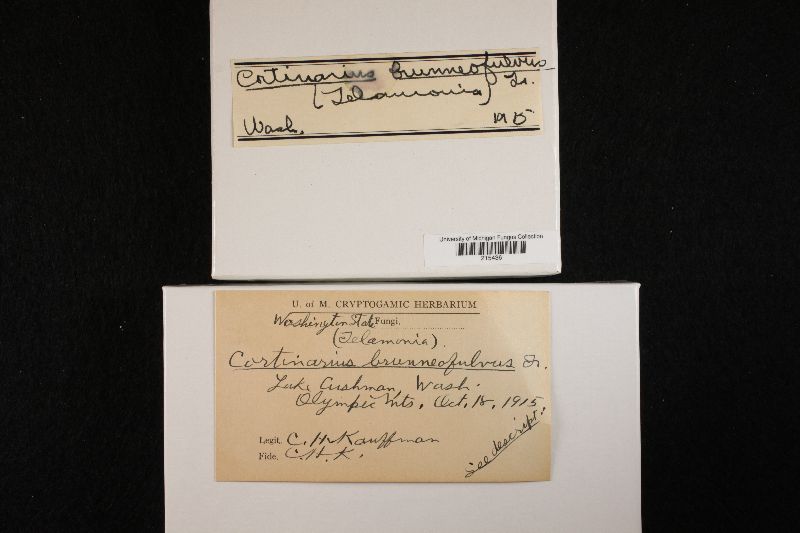 Cortinarius brunneofulvus
(Telamonia) Fr.
Wash. 1915
University of Michigan Fungus Collection
U. of M. CRYPTOGAMIC HERBARIUM
Washington State Fungi.
(Telamonia).
Cortinarius brunneofulvus Fr.
Lake Cushman, Wash.
Olympic Mts, Oct. 18, 1915
Legit. C. H. Kauffman
Fide. C. H. K.
See descript.